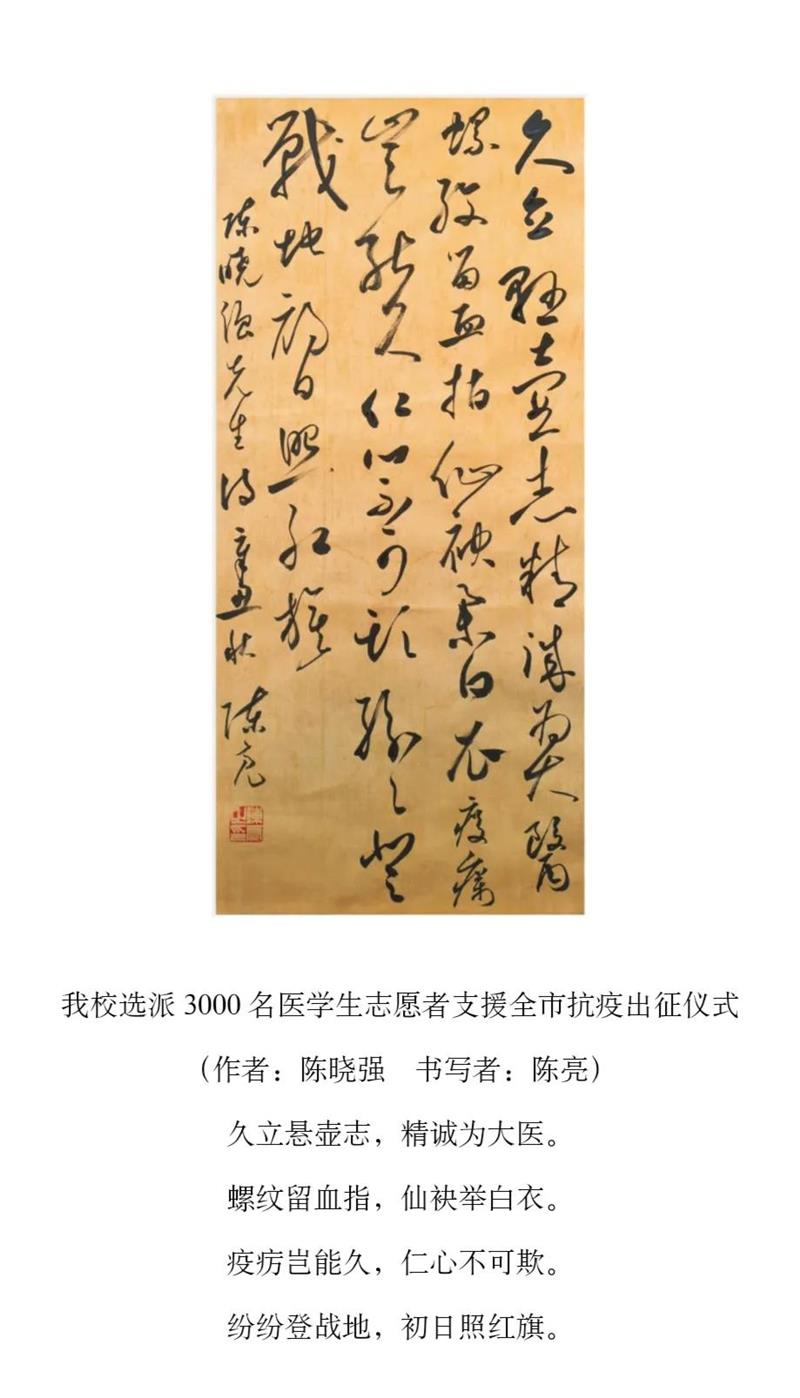 久立懸壺志精誠為大醫
螺紋留血指仙袂舉白衣疫癘
豈能久仁心不可欺紛〻登
戰地初日照紅旗
陳曉强先生詩辛丑秋 陳亮
我校选派 3000 名医学生志愿者支援全市抗疫出征仪式
（作者：陈晓强 书写者：陈亮）
久立悬壶志，精诚为大医。
螺纹留血指，仙袂举白衣。
疫疠岂能久，仁心不可欺。
纷纷登战地，初日照红旗。